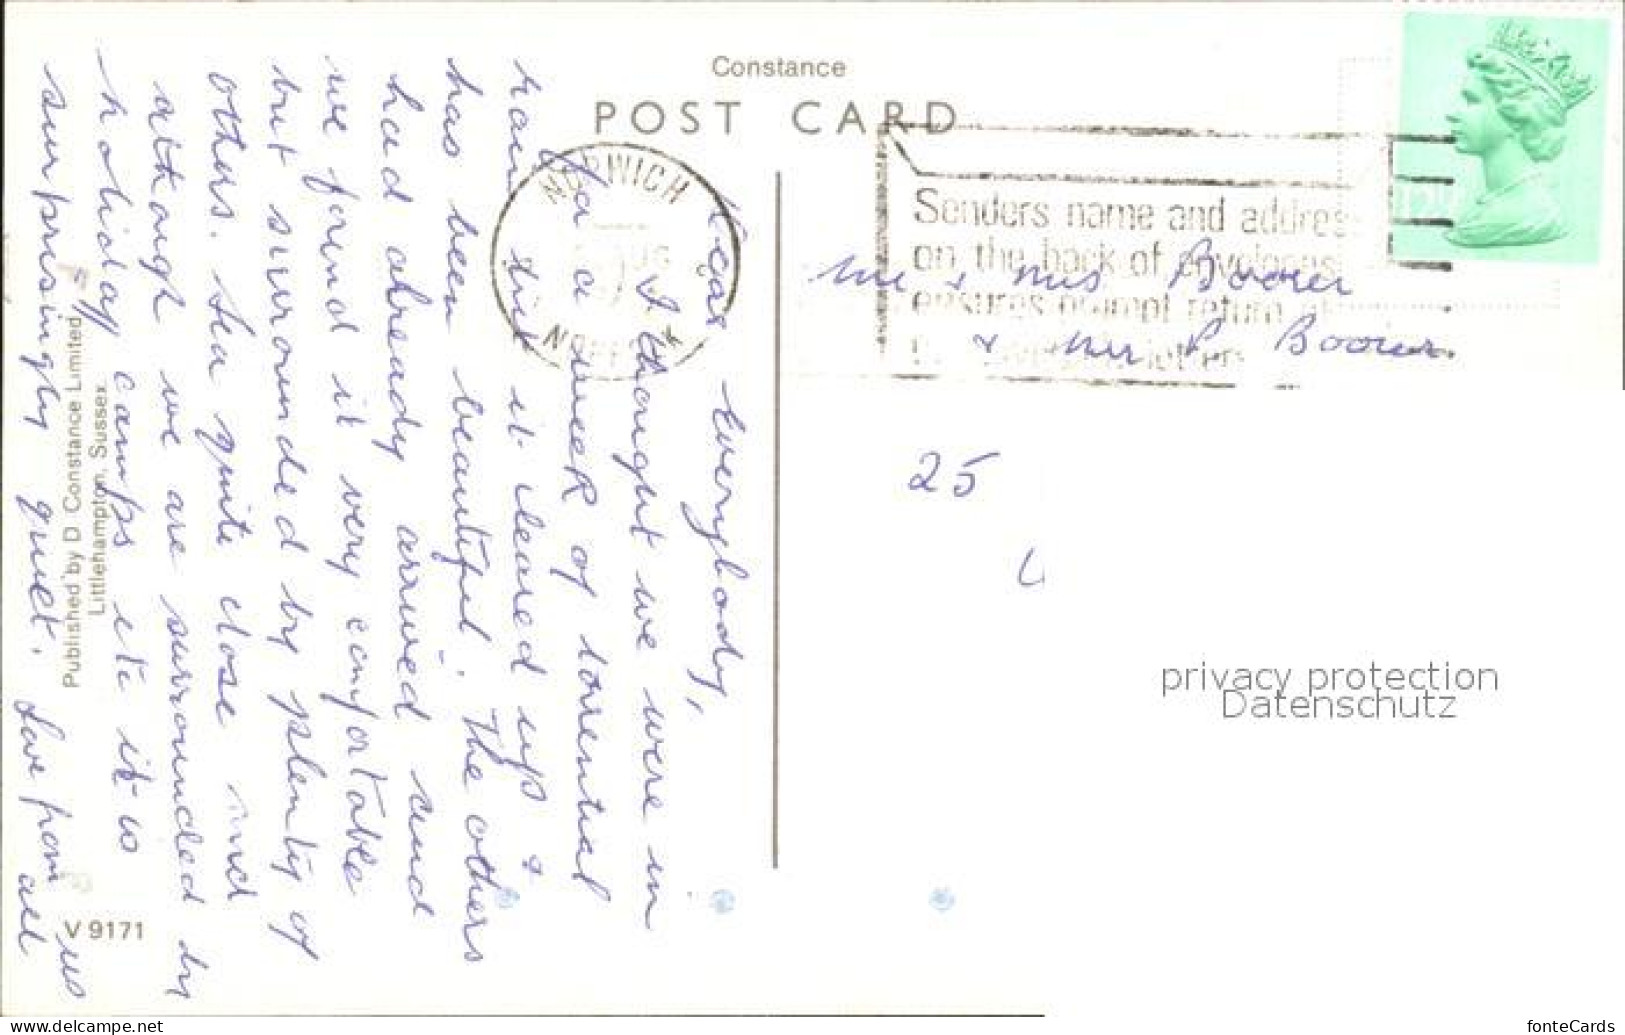 Constance
POST CARD
NORWICH
AUG
Senders name and address
on the back of envelopes
ensures prompt return of
letters
Dear Everybody,
I thought we were in
for a week of torrential
rain but it cleared up &
has been beautiful. The others
had already arrived and
we found it very comfortable
but surrounded by plenty of
others. Sea quite close and
although we are surrounded by
holiday camps etc it is
surprisingly quiet. Love from us
all
Mr & Mrs Boorer
& Mr P Boorer
25
privacy protection
Datenschutz
Published by D Constance Limited
Littlehampton, Sussex.
V 9171
www.delcampe.net
fonteCards